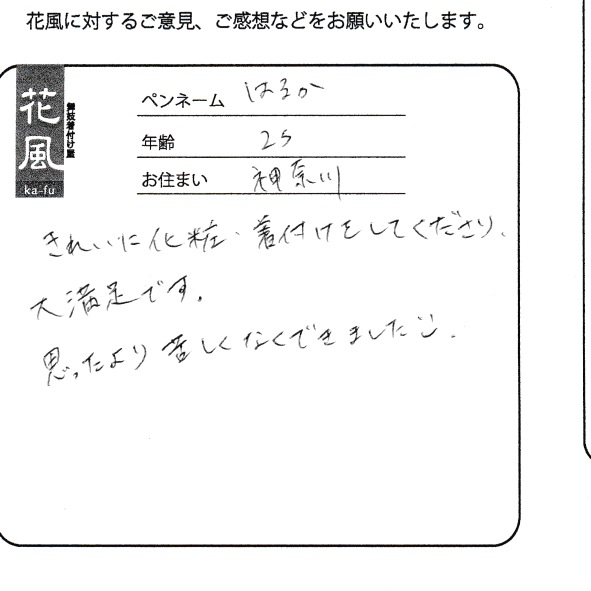 花風に対するご意見、ご感想などをお願いいたします。
花風
舞妓着付け屋
ka-fu
ペンネーム はるか
年齢 25
お住まい 神奈川
きれいに化粧・着付けをしてくださり、
大満足です。
思ったより苦しくなくできました☺.